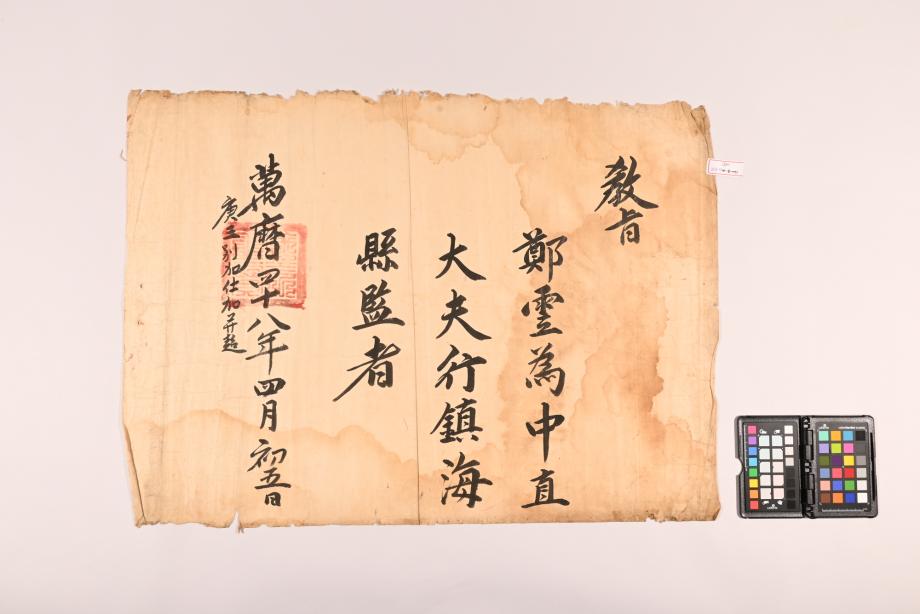 教旨
鄭雲為中直
大夫行鎮海
縣監者
萬曆四十八年四月初五日
庚三別加仕加并超